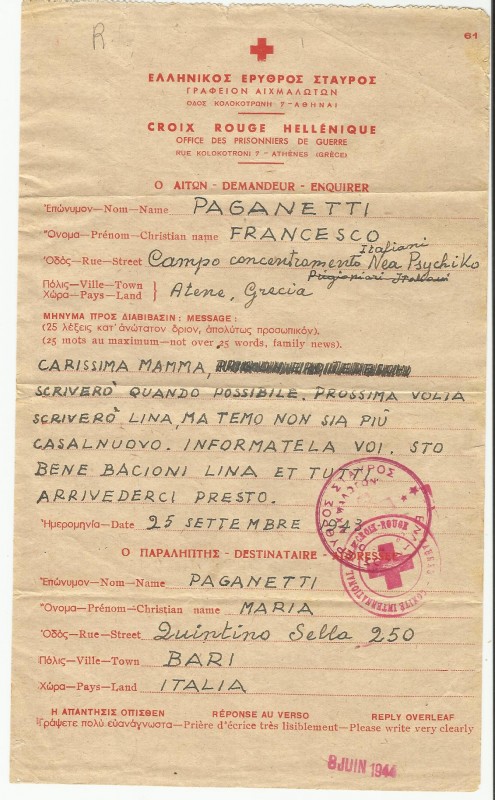 R
61
ΕΛΛΗΝΙΚΟΣ ΕΡΥΘΡΟΣ ΣΤΑΥΡΟΣ
ΓΡΑΦΕΙΟΝ ΑΙΧΜΑΛΩΤΩΝ
ΟΔΟΣ ΚΟΛΟΚΟΤΡΩΝΗ 7 - ΑΘΗΝΑΙ
CROIX ROUGE HELLÉNIQUE
OFFICE DES PRISONNIERS DE GUERRE
RUE KOLOKOTRONI 7 - ATHÈNES (GRÈCE)
Ο ΑΙΤΩΝ - DEMANDEUR - ENQUIRER
Ἐπώνυμον—Nom—Name PAGANETTI
Ὄνομα—Prénom—Christian name FRANCESCO
Italiani
Ὁδός—Rue—Street Campo concentramento Nea Psychiko
Prigionieri Italiani
Πόλις—Ville—Town
Χώρα—Pays—Land } Atene, Grecia
ΜΗΝΥΜΑ ΠΡΟΣ ΔΙΑΒΙΒΑΣΙΝ: MESSAGE:
(25 λέξεις κατ' ἀνώτατον ὅριον, ἀπολύτως προσωπικόν).
(25 mots au maximum—not over 25 words, family news).
CARISSIMA MAMMA,
SCRIVERÒ QUANDO POSSIBILE. PROSSIMA VOLTA
SCRIVERÒ LINA, MA TEMO NON SIA PIÙ
CASALNUOVO. INFORMATELA VOI. STO
BENE BACIONI LINA ET TUTTI.
ARRIVEDERCI PRESTO.
Ἡμερομηνία—Date 25 SETTEMBRE 1943
Ο ΠΑΡΑΛΗΠΤΗΣ - DESTINATAIRE - ADRESSEE
Ἐπώνυμον—Nom—Name PAGANETTI
Ὄνομα—Prénom—Christian name MARIA
Ὁδός—Rue—Street Quintino Sella 250
Πόλις—Ville—Town BARI
Χώρα—Pays—Land ITALIA
Η ΑΠΑΝΤΗΣΙΣ ΟΠΙΣΘΕΝ RÉPONSE AU VERSO REPLY OVERLEAF
Γράψετε πολὺ εὐανάγνωστα—Prière d'écrice très lisiblement—Please write very clearly
8 JUIN 1944